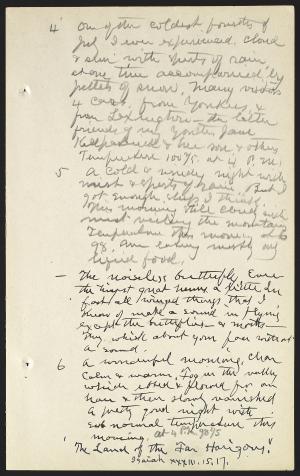 4 One of the coldest fourths of
July I ever experienced. Cloud
& slur with spirts of rain
some time accompanied by
pellets of snow. Many visitors
4 cars. from Yonkers, &
from Lexington – the latter
friends of my youth, Jane
and her son & others
Temperature 100½ at 4 P.M.
5 A cold & windy night with
mist & spirts of rain. But I
got enough sleep I think.
This morning still cloudy with
mist veiling the mountains
Temperature this morning at 6
98. Am eating mostly my
liquid food.
– The noiseless butterfly. Even
the tiniest gnat hums a little. In
fact all winged things that I
know of make a sound in flying
except the butterflies & moths –
They, which about your face without
a sound.
6 A wonderful morning, clear
calm & warm. Fog in the valley
which ebbed & flowed for an
hour & then slowly vanished
A pretty good night with
sub normal temperature this
morning. at 4 P.M. 98½
"The Land of the Far Horizons."
Isaiah XXXIII. 15, 17.